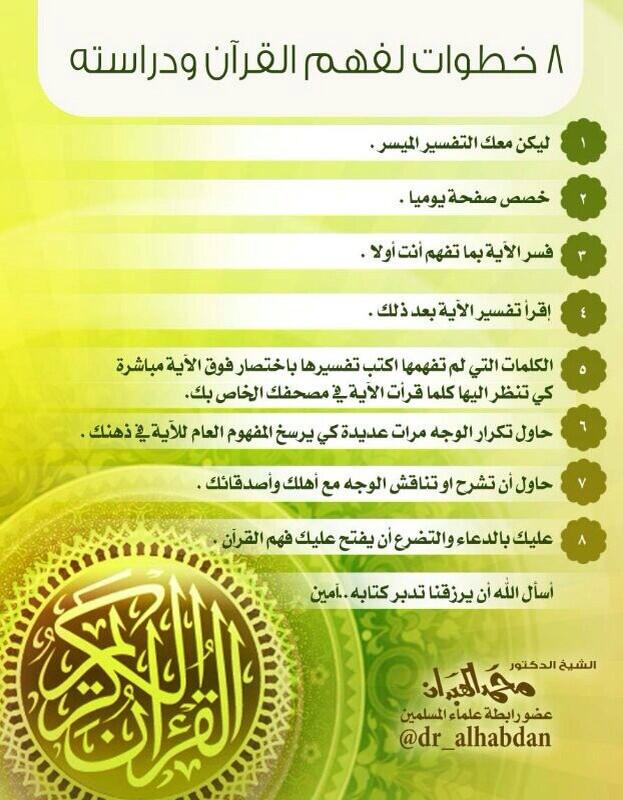 ٨ خطوات لفهم القرآن ودراسته
١ ليكن معك التفسير الميسر .
٢ خصص صفحة يوميا .
٣ فسر الآية بما تفهم أنت أولا .
٤ إقرأ تفسير الآية بعد ذلك .
٥ الكلمات التي لم تفهمها اكتب تفسيرها باختصار فوق الآية مباشرة
كي تنظر اليها كلما قرأت الآية في مصحفك الخاص بك.
٦ حاول تكرار الوجه مرات عديدة كي يرسخ المفهوم العام للآية في ذهنك .
٧ حاول أن تشرح او تناقش الوجه مع أهلك وأصدقائك .
٨ عليك بالدعاء والتضرع أن يفتح عليك فهم القرآن .
أسأل الله أن يرزقنا تدبر كتابه ..آمين
الشيخ الدكتور
محمد الهبدان
عضو رابطة علماء المسلمين
@dr_alhabdan
القرآن الكريم